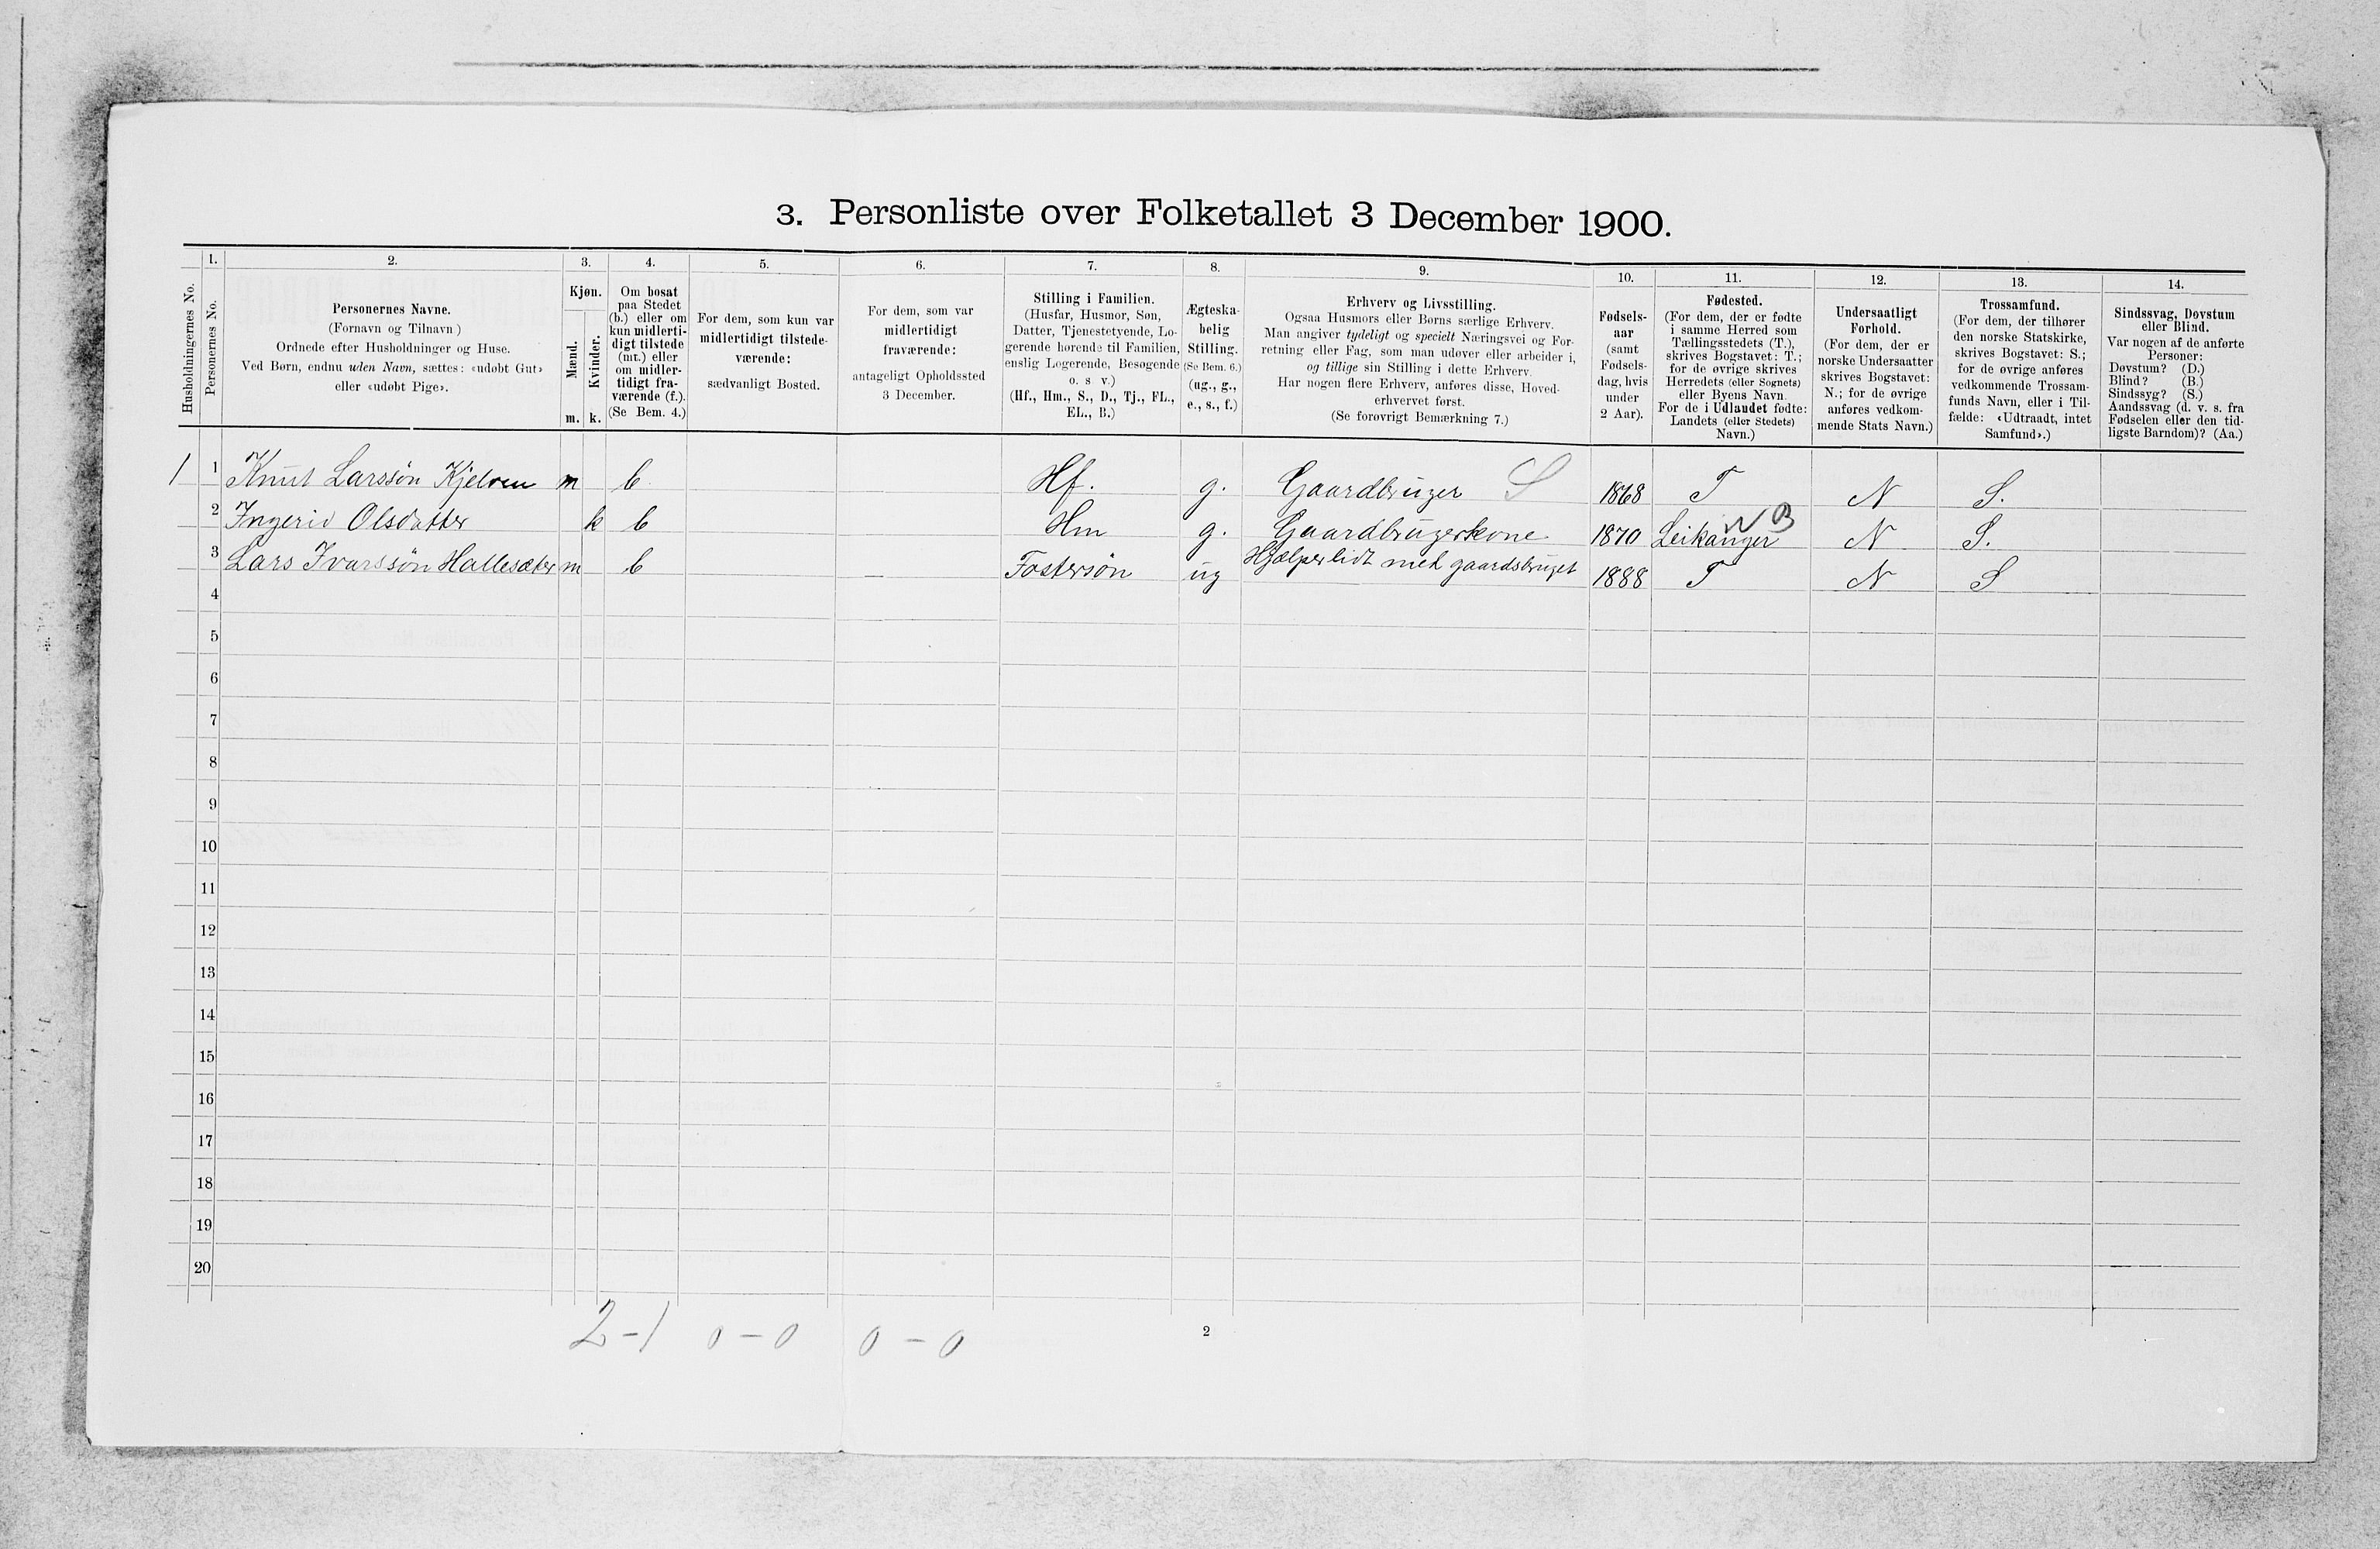 3. Personliste over Folketallet 3 December 1900.
Husholdningernes No.
1.
Personernes No.
2.
Personernes Navne.
(Fornavn og Tilnavn)
Ordnede efter Husholdninger og Huse.
Ved Børn, endnu uden Navn, sættes: «udøbt Gut»
eller «udøbt Pige».
3.
Kjøn.
Mænd.
Kvinder.
m. k.
4.
Om bosat
paa Stedet
(b.) eller om
kun midlerti-
digt tilstede
(mt.) eller
om midler-
tidigt fra-
værende (f.).
(Se Bem. 4.)
5.
For dem, som kun var
midlertidigt tilstede-
værende:
sædvanligt Bosted.
6.
For dem, som var
midlertidigt
fraværende:
antageligt Opholdssted
3 December.
7.
Stilling i Familien.
(Husfar, Husmor, Søn,
Datter, Tjenestetyende, Lo-
gerende hørende til Familien,
enslig Logerende, Besøgende
o. s v.)
(Hf., Hm., S., D., Tj., FL.,
EL., B.)
8.
Ægteska-
belig
Stilling.
(Se Bem. 6.)
(ug., g.,
e., s., f.)
9.
Erhverv og Livsstilling.
Ogsaa Husmors eller Børns særlige Erhverv.
Man angiver tydeligt og specielt Næringsvei og For-
retning eller Fag, som man udøver eller arbeider i,
og tillige sin Stilling i dette Erhverv.
Har nogen flere Erhverv, anføres disse, Hoved-
erhvervet først.
(Se forøvrigt Bemærkning 7.)
10.
Fødsels-
aar
(samt
Fødsels-
dag, hvis
under
2 Aar).
11.
Fødested.
(For dem, der er fødte
i samme Herred som
Tællingsstedets (T.),
skrives Bogstavet: T.;
for de øvrige skrives
Herredets (eller Sognets)
eller Byens Navn.
For de i Udlandet fødte:
Landets (eller Stedets)
Navn.)
12.
Undersaatligt
Forhold.
(For dem, der er
norske Undersaatter
skrives Bogstavet:
N.; for de øvrige
anføres vedkom-
mende Stats Navn.)
13.
Trossamfund.
(For dem, der tilhører
den norske Statskirke,
skrives Bogstavet: S.;
for de øvrige anføres
vedkommende Trossam-
funds Navn, eller i Til-
fælde: «Udtraadt, intet
Samfund».)
14.
Sindssvag, Døvstum
eller Blind.
Var nogen af de anførte
Personer:
Døvstum? (D.)
Blind? (B.)
Sindssyg? (S.)
Aandssvag (d. v. s. fra
Fødselen eller den tid-
ligste Barndom)? (Aa.)
1 1 Knut Larssøn Kjelven m b Hf. g. Gaardbruger S 1868 T N S.
2 Ingerid Olsdatter k b Hm g. Gaardbrugerkone 1870 Leikanger N B N S.
3 Lars Ivarssøn Hallesæter m b — Fostersøn ug Hjælper lidt med gaardsbruget 1888 T N S
4
5
6
7
8
9
10
11
12
13
14
15
16
17
18
19
20
2-1 0-0 0-0
2